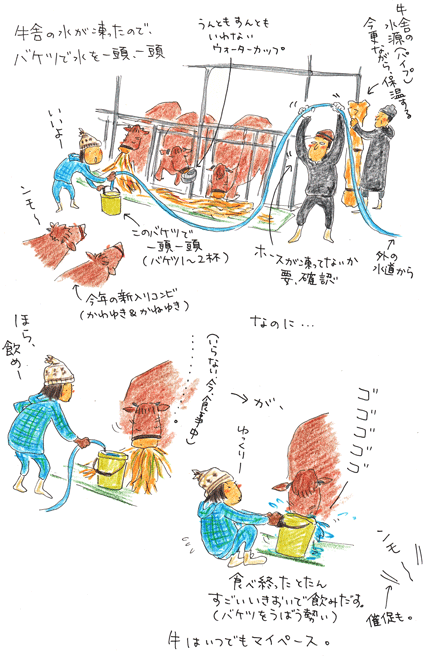 牛舎の水が凍ったので、
バケツで水を一頭、一頭
うんともすんとも
いわない
ウォーターカップ。
牛舎の
水源(パイプ)
今更
ながら、保温する
いいよー
ンモ〜
このバケツで
一頭一頭
(バケツ1〜2杯)
今年の新入りコンビ
(かわゆき&かねゆき)
ホースが凍ってないか
要、確認
外の
水道から
ほら、
飲めー
なのに…
(いらない。今、食事中)
→が、
ゆっくりー
ゴゴゴゴゴ
ンモ〜
食べ終ったとたん
すごいいきおいで飲みだす。
(バケツをうばう勢い)
催促も。
牛はいつでもマイペース。